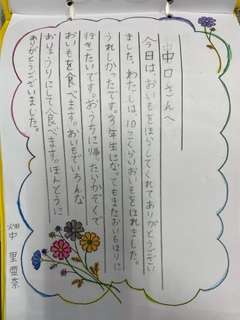 中口さんへ
今日は、おいもをほらしてくれてありがとうござい
ました。わたしは10こぐらいおいもをほれました。
うれしかったです。3年生になってもまたおいもほりに
行きたいです。おうちに帰ったらかぞくで
おいもを食べます。おいもでいろんな
おりょうりにして食べます。ほんとうに
ありがとうございました。
畑中 里亜奈